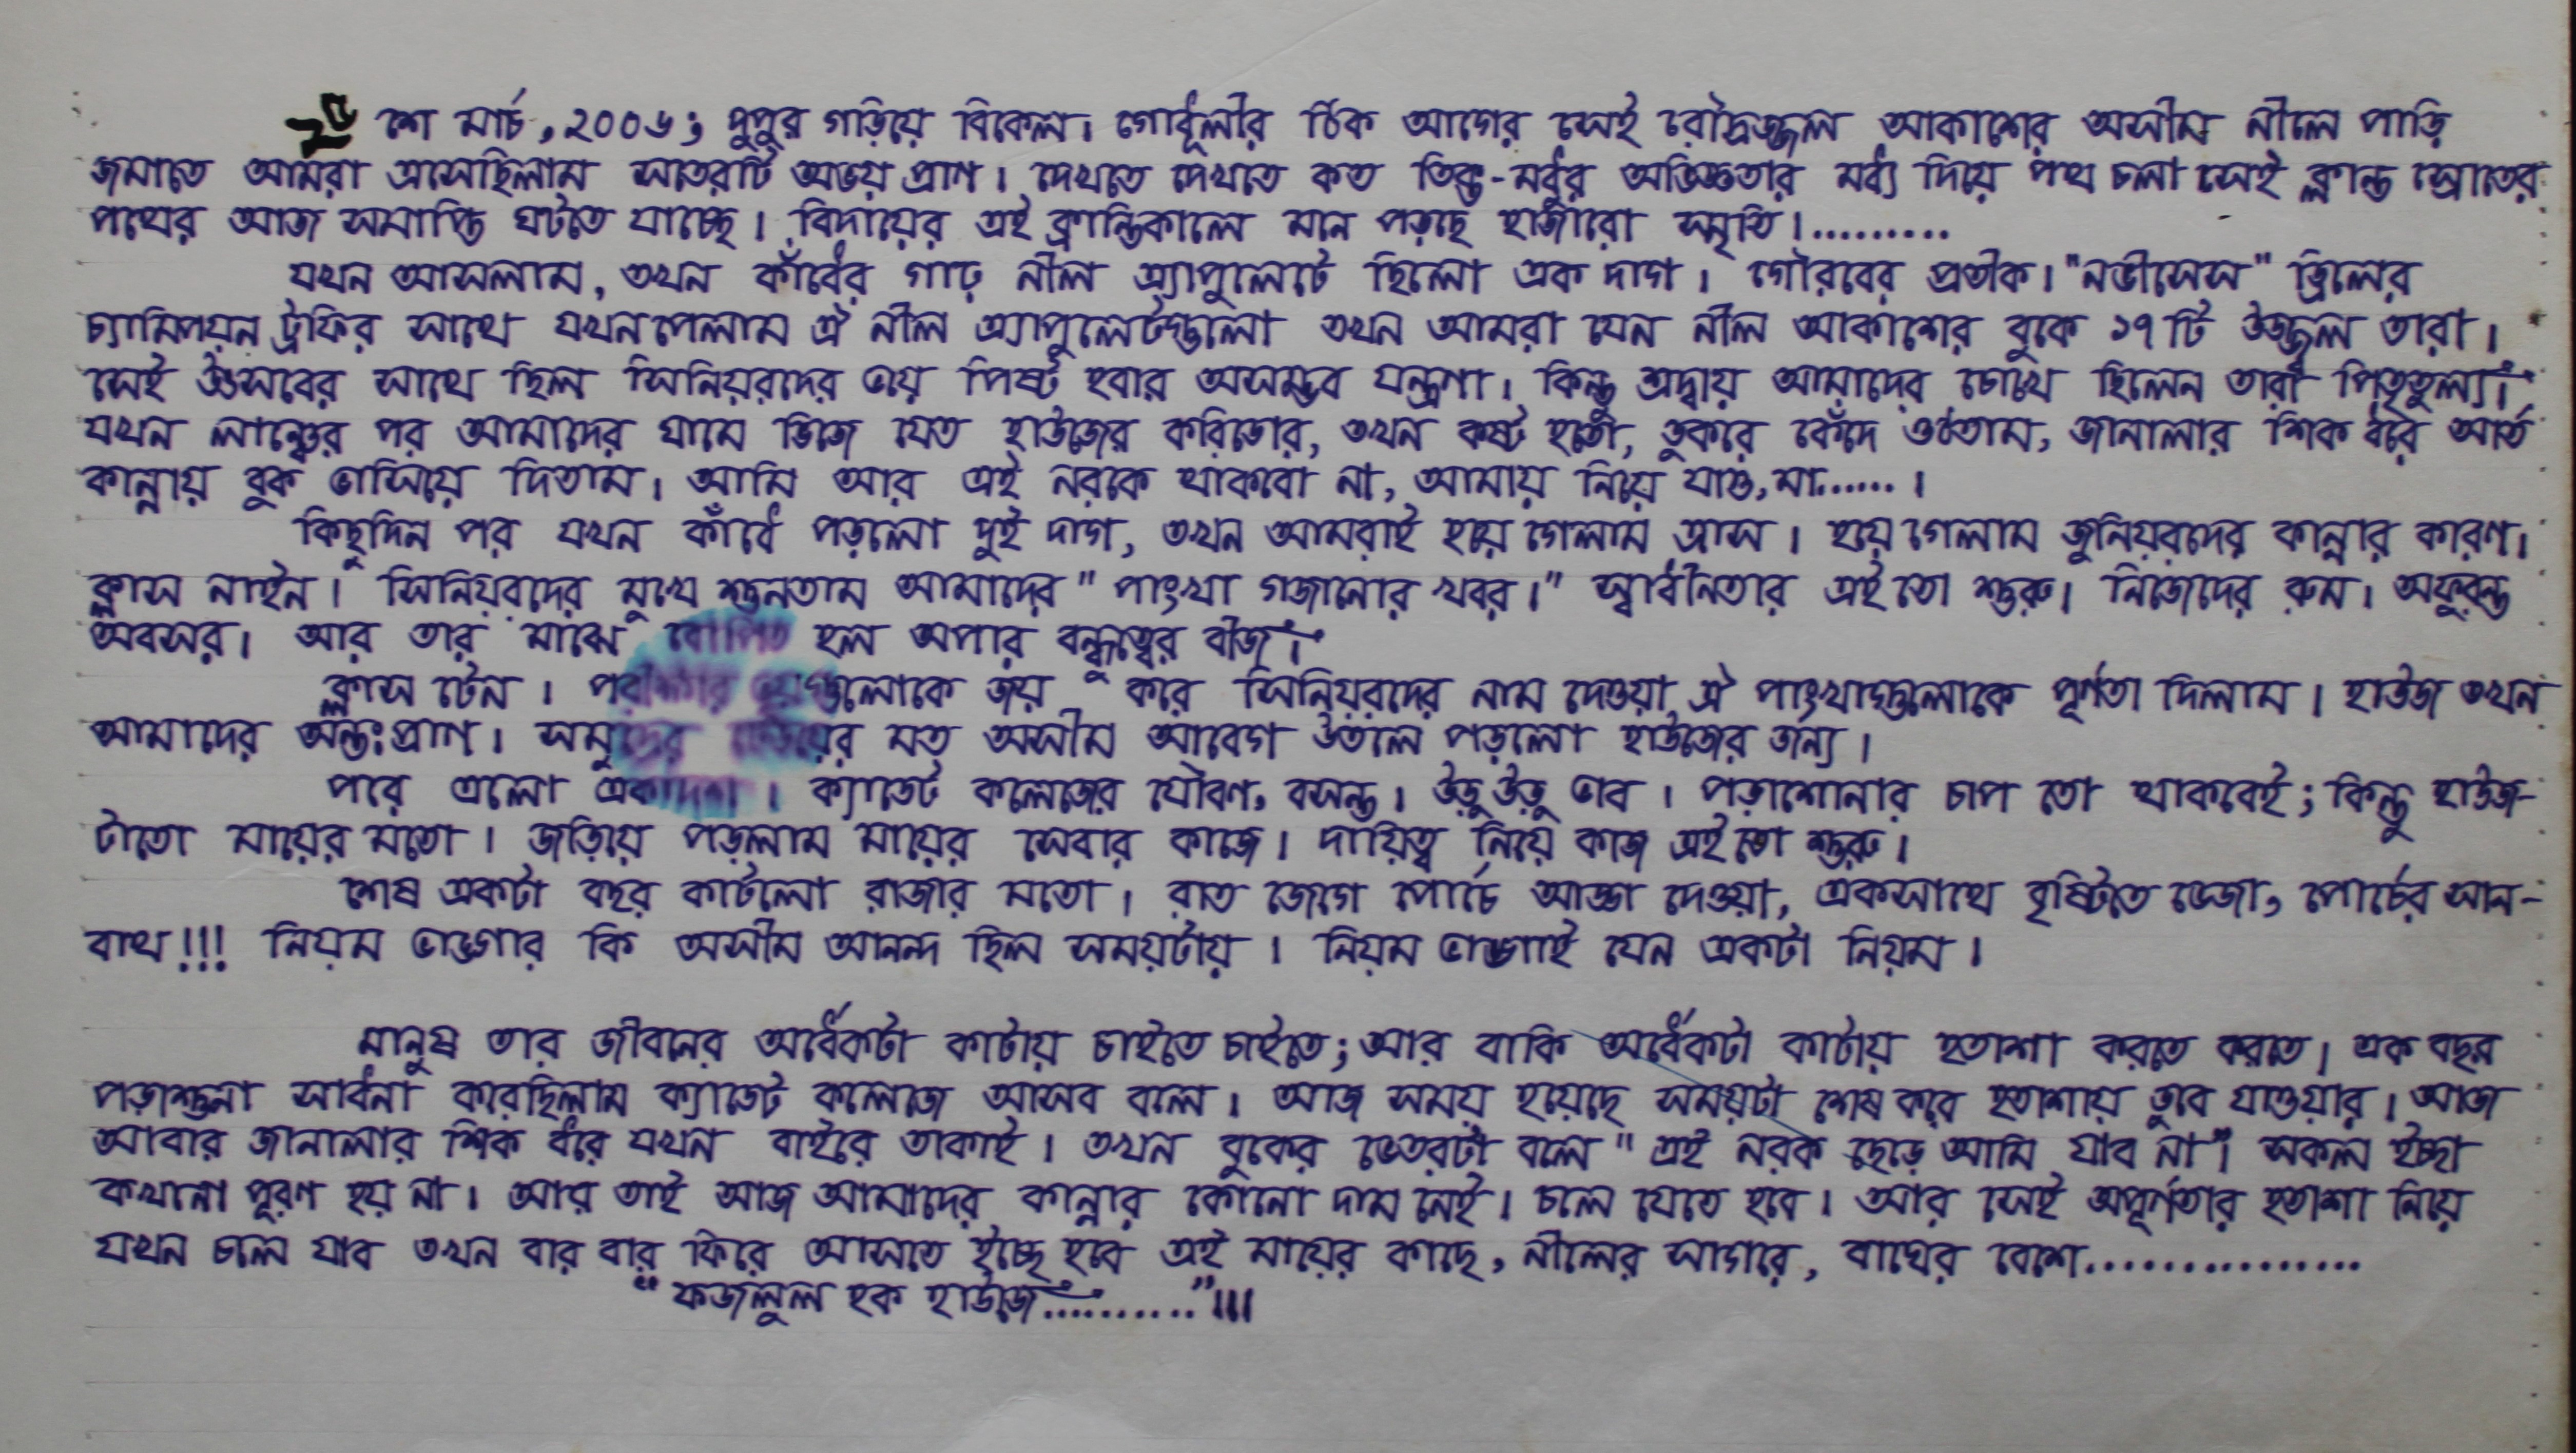 ২৫ শে মার্চ, ২০০৬; দুপুর গড়িয়ে বিকেল। গোধূলীর ঠিক আগের সেই রৌদ্রজ্জল আকাশের অসীম নীলে পাড়ি
জমাতে আমরা এসেছিলাম সতেরটি অভয় প্রাণ। দেখতে দেখতে কত তিক্ত-মধুর অভিজ্ঞতার মধ্য দিয়ে পথ চলা সেই ক্লান্ত স্রোতের
পথের আজ সমাপ্তি ঘটতে যাচ্ছে। বিদায়ের এই ক্রান্তিকালে মনে পড়ছে হাজারো স্মৃতি।.........
যখন আসলাম, তখন কাঁধের গাঢ় নীল এ্যাপুলেটে ছিলো এক দাগ। গৌরবের প্রতীক। "নভীসেস" ড্রিলের
চ্যাম্পিয়ন ট্রফির সাথে যখন পেলাম ঐ নীল এ্যাপুলেটগুলো তখন আমরা যেন নীল আকাশের বুকে ১৭টি উজ্জ্বল তারা।
সেই উৎসবের সাথে ছিল সিনিয়রদের ভয়ে পিষ্ট হবার অসম্ভব যন্ত্রণা। কিন্তু শ্রদ্ধায় আমাদের চোখে ছিলেন তারা পিতৃতুল্য।
যখন লাঞ্চের পর আমাদের ঘামে ভিজে যেত হাউজের করিডোর, তখন কষ্ট হতো, ডুকরে কেঁদে ওঠতাম, জানালার শিক ধরে আর্ত
কান্নায় বুক ভাসিয়ে দিতাম। আমি আর এই নরকে থাকবো না, আমায় নিয়ে যাও, মা......।
কিছুদিন পর যখন কাঁধে পড়লো দুই দাগ, তখন আমরাই হয়ে গেলাম ত্রাস। হয়ে গেলাম জুনিয়রদের কান্নার কারণ।
ক্লাস নাইন। সিনিয়রদের মুখে শুনতাম আমাদের "পাংখা গজানোর খবর।" স্বাধীনতার এইতো শুরু। নিজেদের রুম। অফুরন্ত
অবসর। আর তার মাঝে রোপিত হল অপার বন্ধুত্বের বীজ।
ক্লাস টেন। পরীক্ষার ভয়গুলোকে জয় করে সিনিয়রদের নাম দেওয়া ঐ পাংখাগুলোকে পূর্ণতা দিলাম। হাউজ তখন
আমাদের অন্তঃপ্রাণ। সমুদ্রের মত অসীম আবেগ উতলে পড়লো হাউজের জন্য।
পরে এলো একাদশ। ক্যাডেট কলেজের যৌবণ, বসন্ত। উড়ু উড়ু ভাব। পড়াশোনার চাপ তো থাকবেই; কিন্তু হাউজ-
টাতো মায়ের মতো। জড়িয়ে পড়লাম মায়ের সেবার কাজে। দায়িত্ব নিয়ে কাজ এইতো শুরু।
শেষ একটা বছর কাটলো রাজার মতো। রাত জেগে পোর্চে আড্ডা দেওয়া, একসাথে বৃষ্টিতে ভেজা, পোর্চের সান-
বাথ!!! নিয়ম ভাঙ্গার কি অসীম আনন্দ ছিল সময়টায়। নিয়ম ভাঙ্গাই যেন একটা নিয়ম।
মানুষ তার জীবনের অর্ধেকটা কাটায় চাইতে চাইতে; আর বাকি অর্ধেকটা কাটায় হতাশা করতে করতে। এক বছর
পড়াশুনা সাধনা করেছিলাম ক্যাডেট কলেজে আসব বলে। আজ সময় হয়েছে সময়টা শেষ করে হতাশায় ডুবে যাওয়ার। আজ
আবার জানালার শিক ধরে যখন বাইরে তাকাই। তখন বুকের ভেতরটা বলে "এই নরক ছেড়ে আমি যাব না"। সকল ইচ্ছা
কখনো পূরণ হয় না। আর তাই আজ আমাদের কান্নার কোনো দাম নেই। চলে যেতে হবে। আর সেই অপূর্ণতার হতাশা নিয়ে
যখন চলে যাব তখন বার বার ফিরে আসতে ইচ্ছে হবে এই মায়ের কাছে, নীলের সাগরে, বাঘের বেশে...............
"ফজলুল হক হাউজে..........."!!!